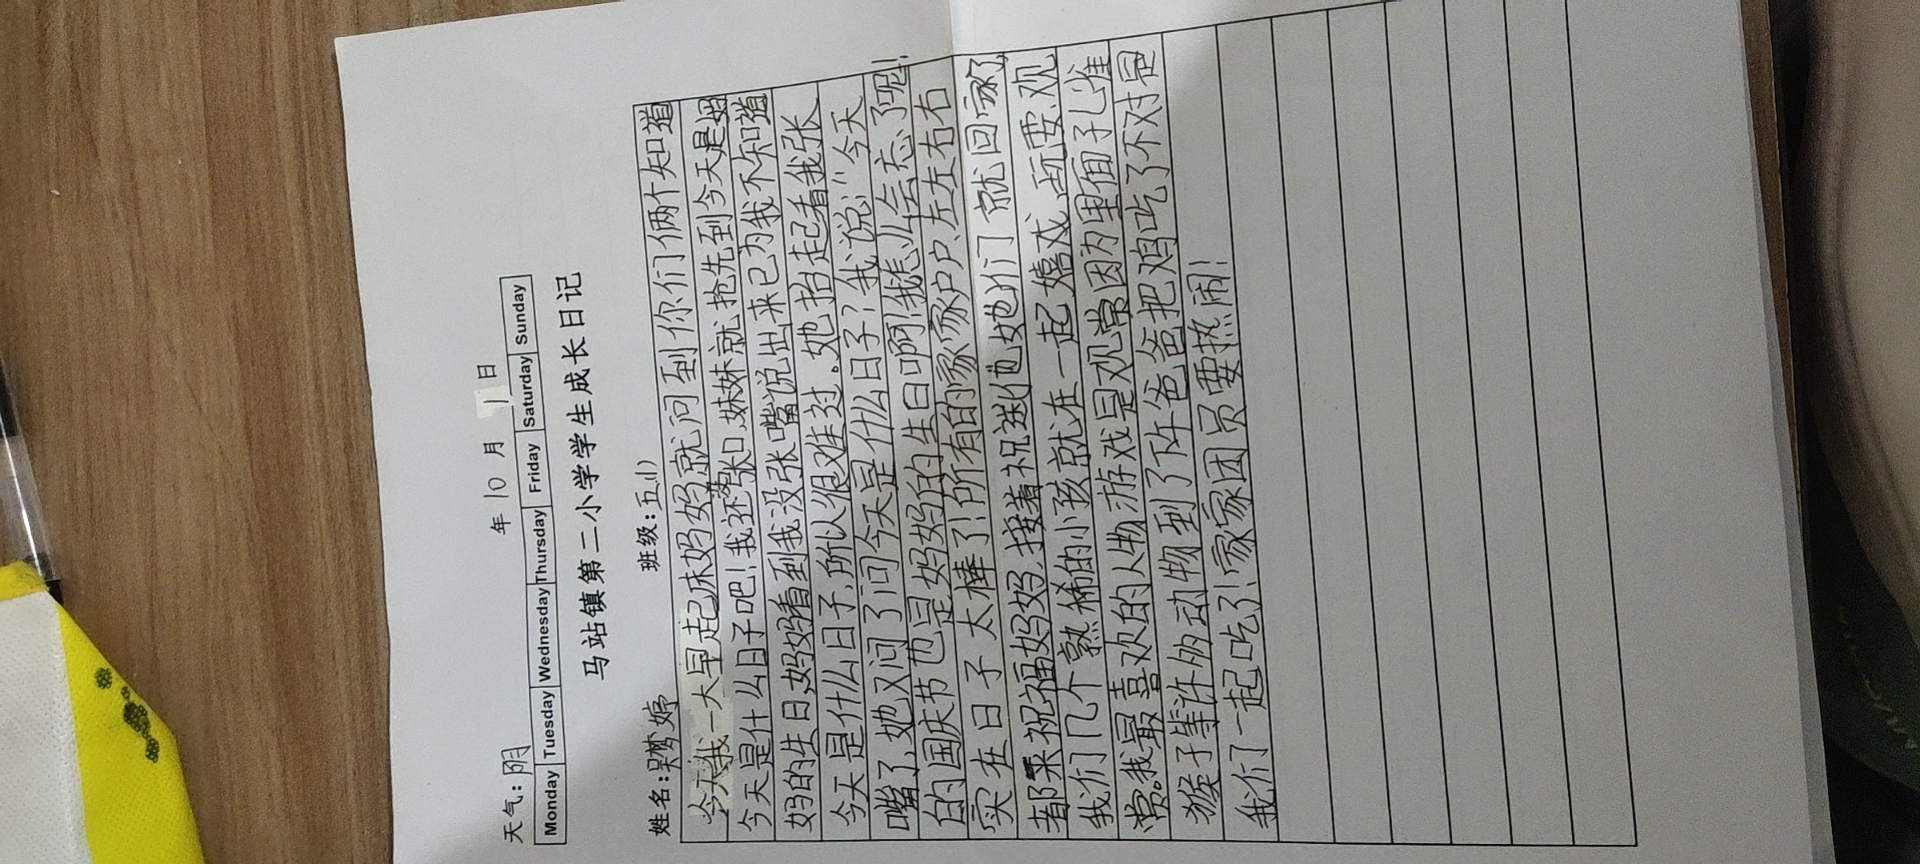 天气:阴 年10月1日
Monday Tuesday Wednesday Thursday Friday Saturday Sunday
马站镇第二小学学生成长日记
姓名: 梦婷 班级:五(1)
今天我一大早起床妈妈就问到你们俩个知道
今天是什么日子吧!我还没张口,妹妹就抢先到今天是妈
妈的生日,妈妈看到我没张嘴说出来已为我不知道
今天是什么日子,所以很难过。她抬起看我张
嘴了,她又问了问今天是什么日子?我说:"今天
的国庆节也是妈妈的生日啊,我怎么会忘了呢!
实在日子太棒了!所有的家家户户左左右右
都来祝福妈妈,接着祝送他她他们就回家了,
我们几个熟稀的小孩就在一起嬉戏、玩耍、观
赏。我最喜欢的人物游戏是观赏因为里面了
猴子等许多动物到了下午爸爸把鸡吃了不对是
我们一起吃了!家家团员要热闹!